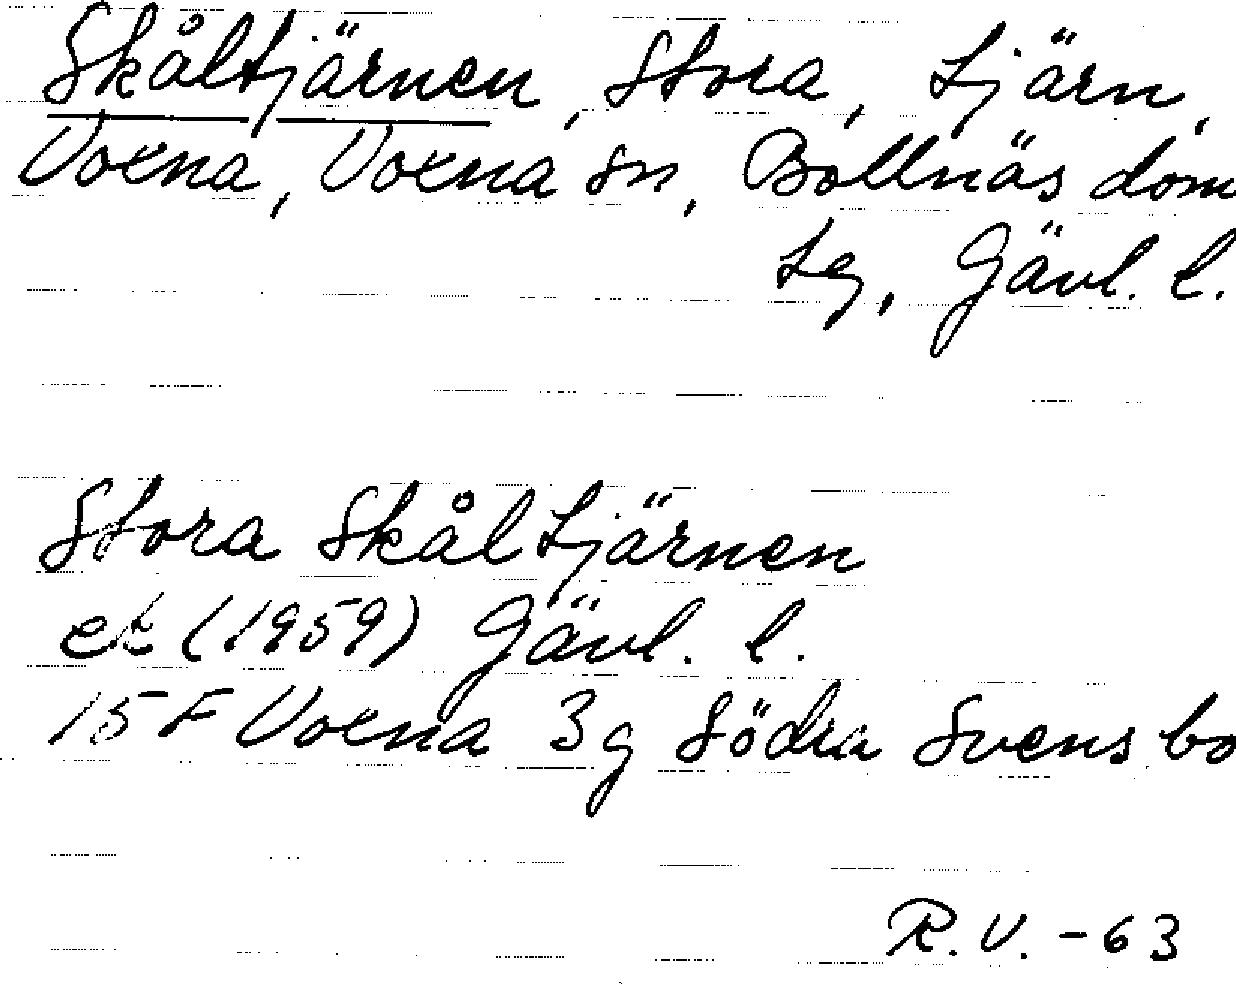 Skåltjärnen, Stora, tjärn,
Voxna, Voxna sn, Bollnäs dom
sg, Gävl. l.
Stora Skåltjärnen
ek (1959) Gävl. l.
15 F Voxna 3g Södra Svensbo
R.V. -63